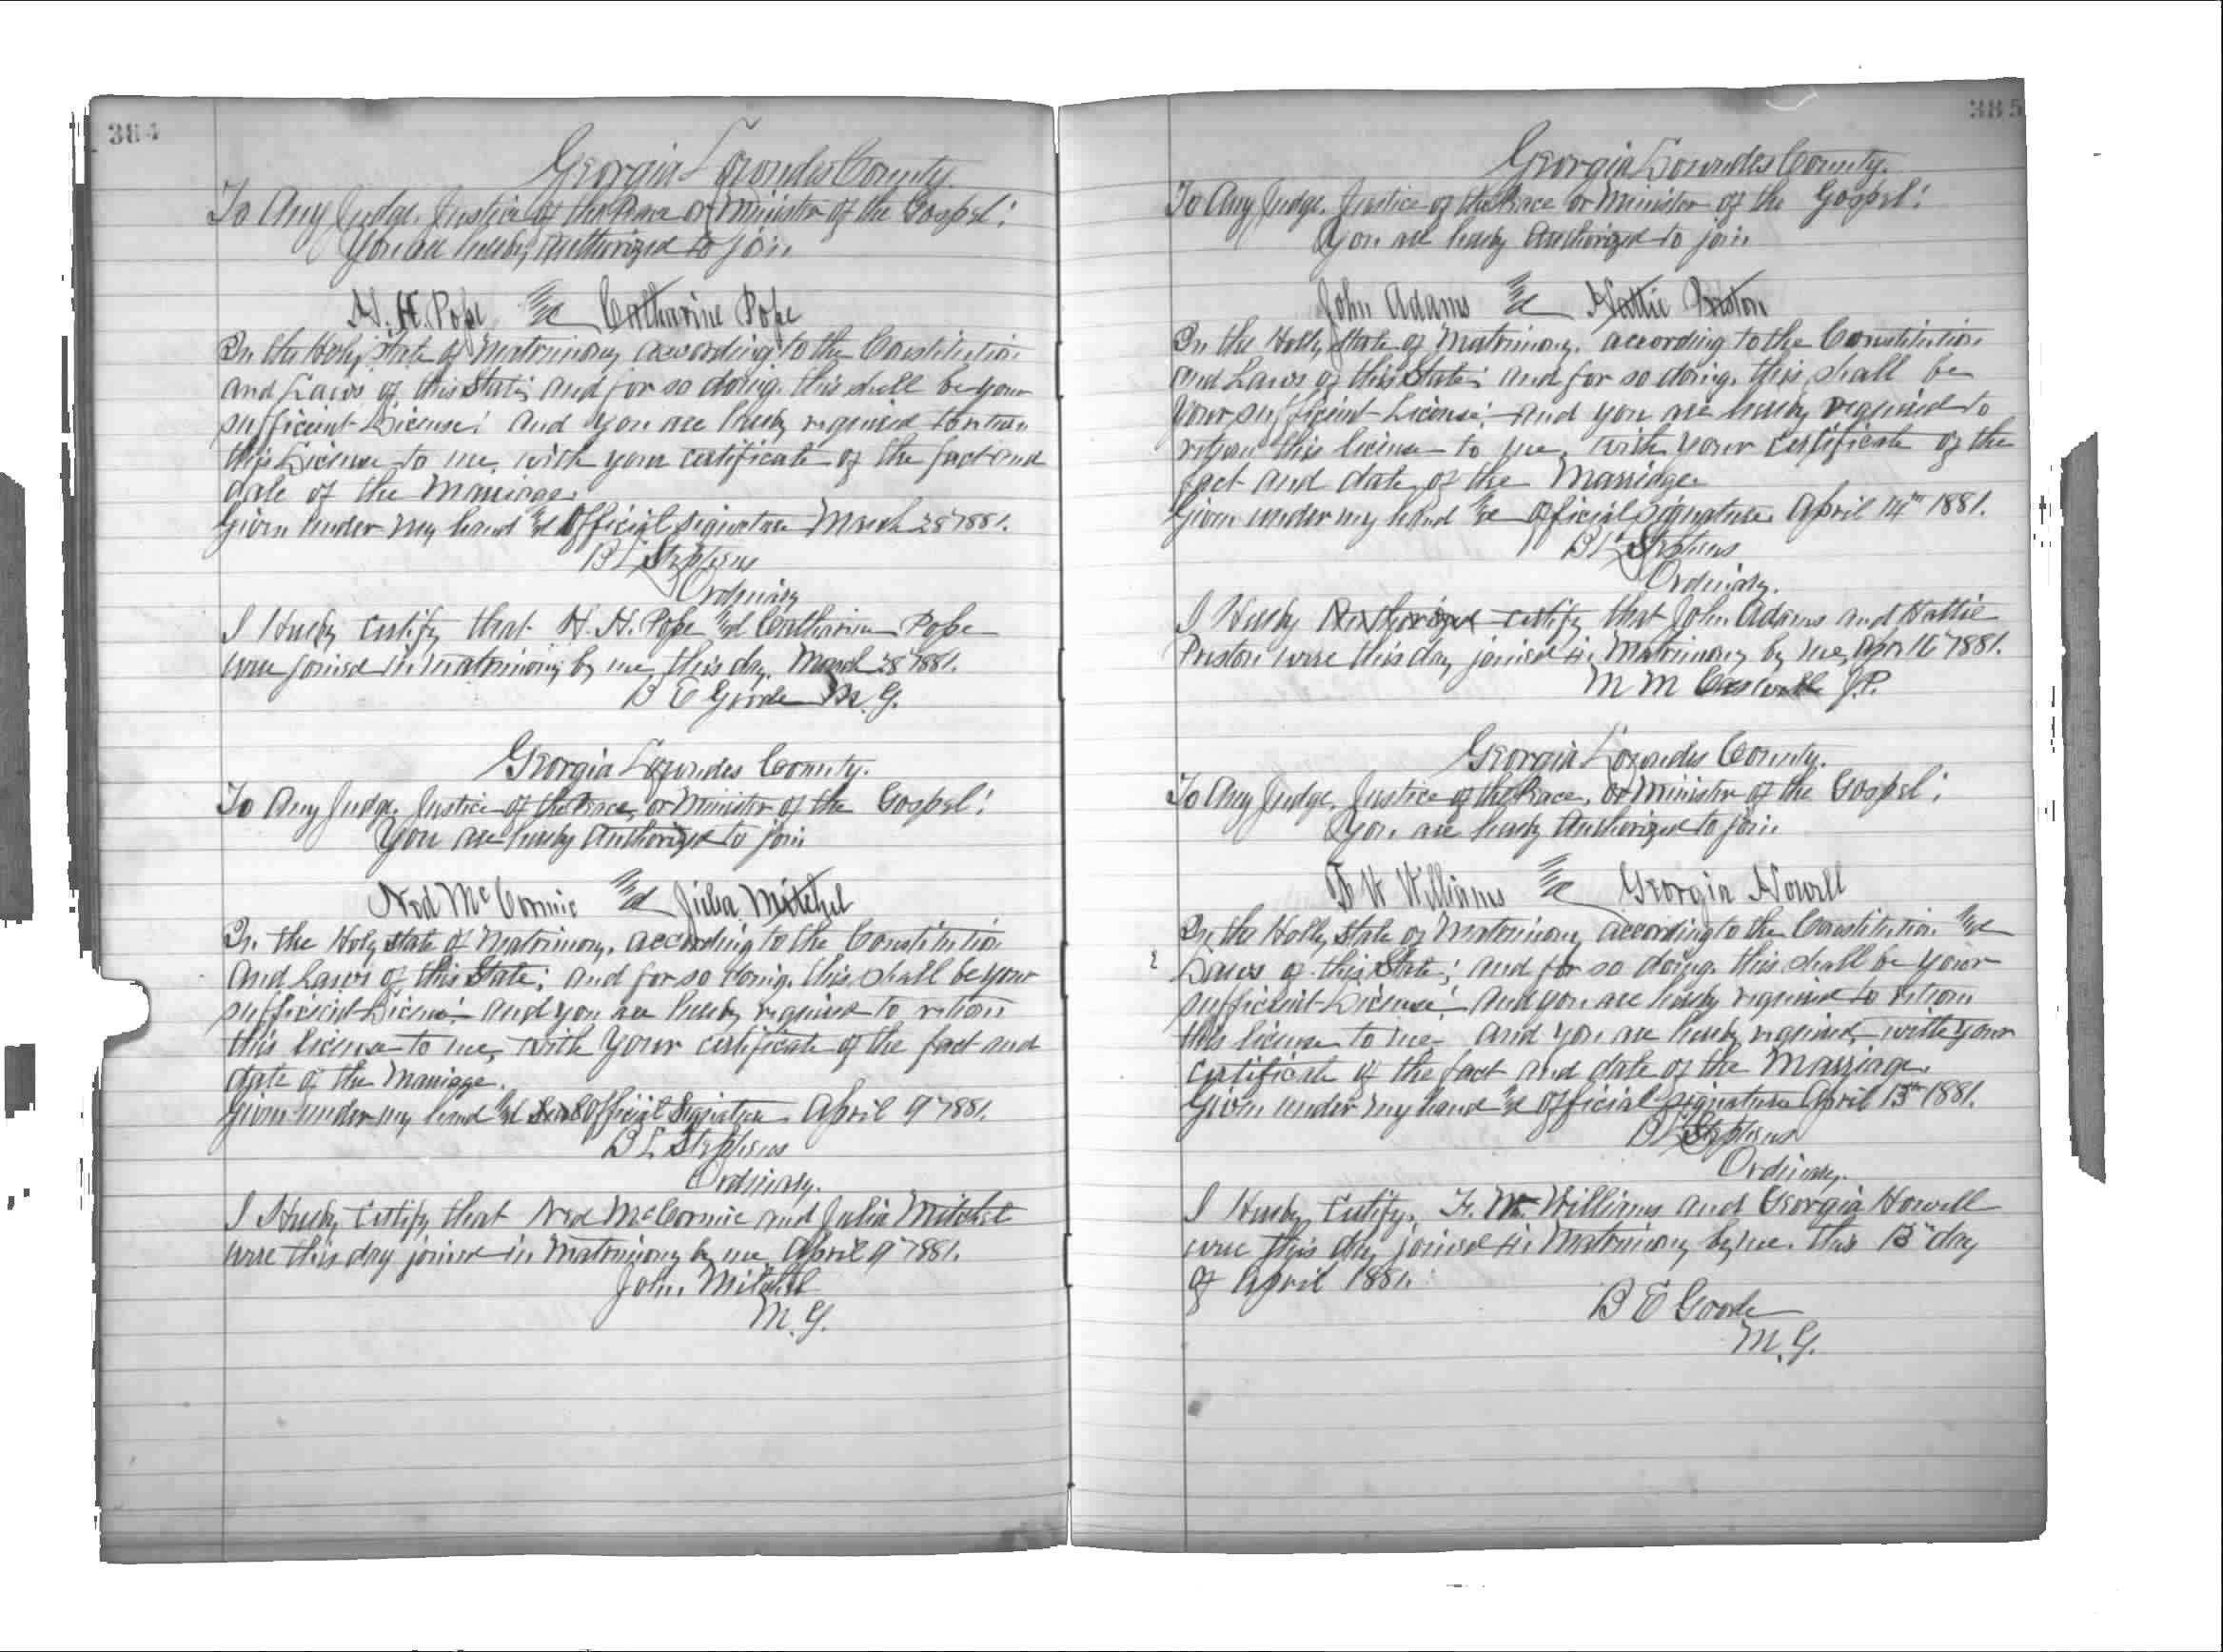 384
Georgia Lowndes County.
To Any Judge, Justice of the Peace or Minister of the Gospel:
You are hereby Authorized to join
H. H. Pope And Catharine Pope
In the Holy State of Matrimony according to the Constitution
and Laws of this State; and for so doing, this shall be your
sufficient License: and you are hereby required to return
this License to me, with your certificate of the fact and
date of the Marriage.
Given under my hand and Official Signature March 28" 1881.
B L Stephens
Ordinary
I Hereby Certify that H. H. Pope and Catharine Pope
were joined in matrimony by me this day, March 28" 1881.
B E Goode M. G.
Georgia Lowndes County.
To Any Judge, Justice of the Peace, or Minister of the Gospel:
You are hereby Authorized to join
Ned McCormic And Julia Mitchel
In the Holy State of Matrimony, according to the Constitution
and Laws of this State; and for so doing, this shall be your
sufficient License: and you are hereby required to return
this license to me, with your certificate of the fact and
date of the Marriage.
Given under my hand and Official Signature April 9" 1881.
B L Stephens
Ordinary.
I Hereby Certify that Ned McCormic and Julia Mitchel
were this day joined in Matrimony by me April 9" 1881.
John Mitchel
M. G.
385
Georgia Lowndes County.
To Any Judge, Justice of the Peace or Minister of the Gospel:
You are hereby Authorized to join
John Adams And Hattie Preston
In the Holly State of Matrimony, according to the Constitution
and Laws of this State; and for so doing, this shall be
your sufficient License: and you are hereby required to
return this license to me, with your Certificate of the
fact and date of the Marriage.
Given under my hand and official signature April 14th 1881.
B L Stephens
Ordinary.
I Hereby Authorized certify that John Adams and Hattie
Preston were this day joined in Matrimony by me, Apr 16" 1881.
M M J.P.
Georgia Lowndes County.
To Any Judge, Justice of the Peace, or Minister of the Gospel:
You are hereby Authorized to join
F W Williams And Georgia Howell
In the Holly State of Matrimony according to the Constitution and
Laws of this State; and for so doing, this shall be your
sufficient License: and you are hereby required to return
this license to me and you are hereby required, with your
certificate of the fact and date of the Marriage.
Given under my hand and official signature April 13th 1881.
B L Stephens
Ordinary.
I Hereby Certify, F. W. Williams and Georgia Howell
were this day joined in Matrimony by me. this 13" day
of April 1881.
B E Goode
M. G.